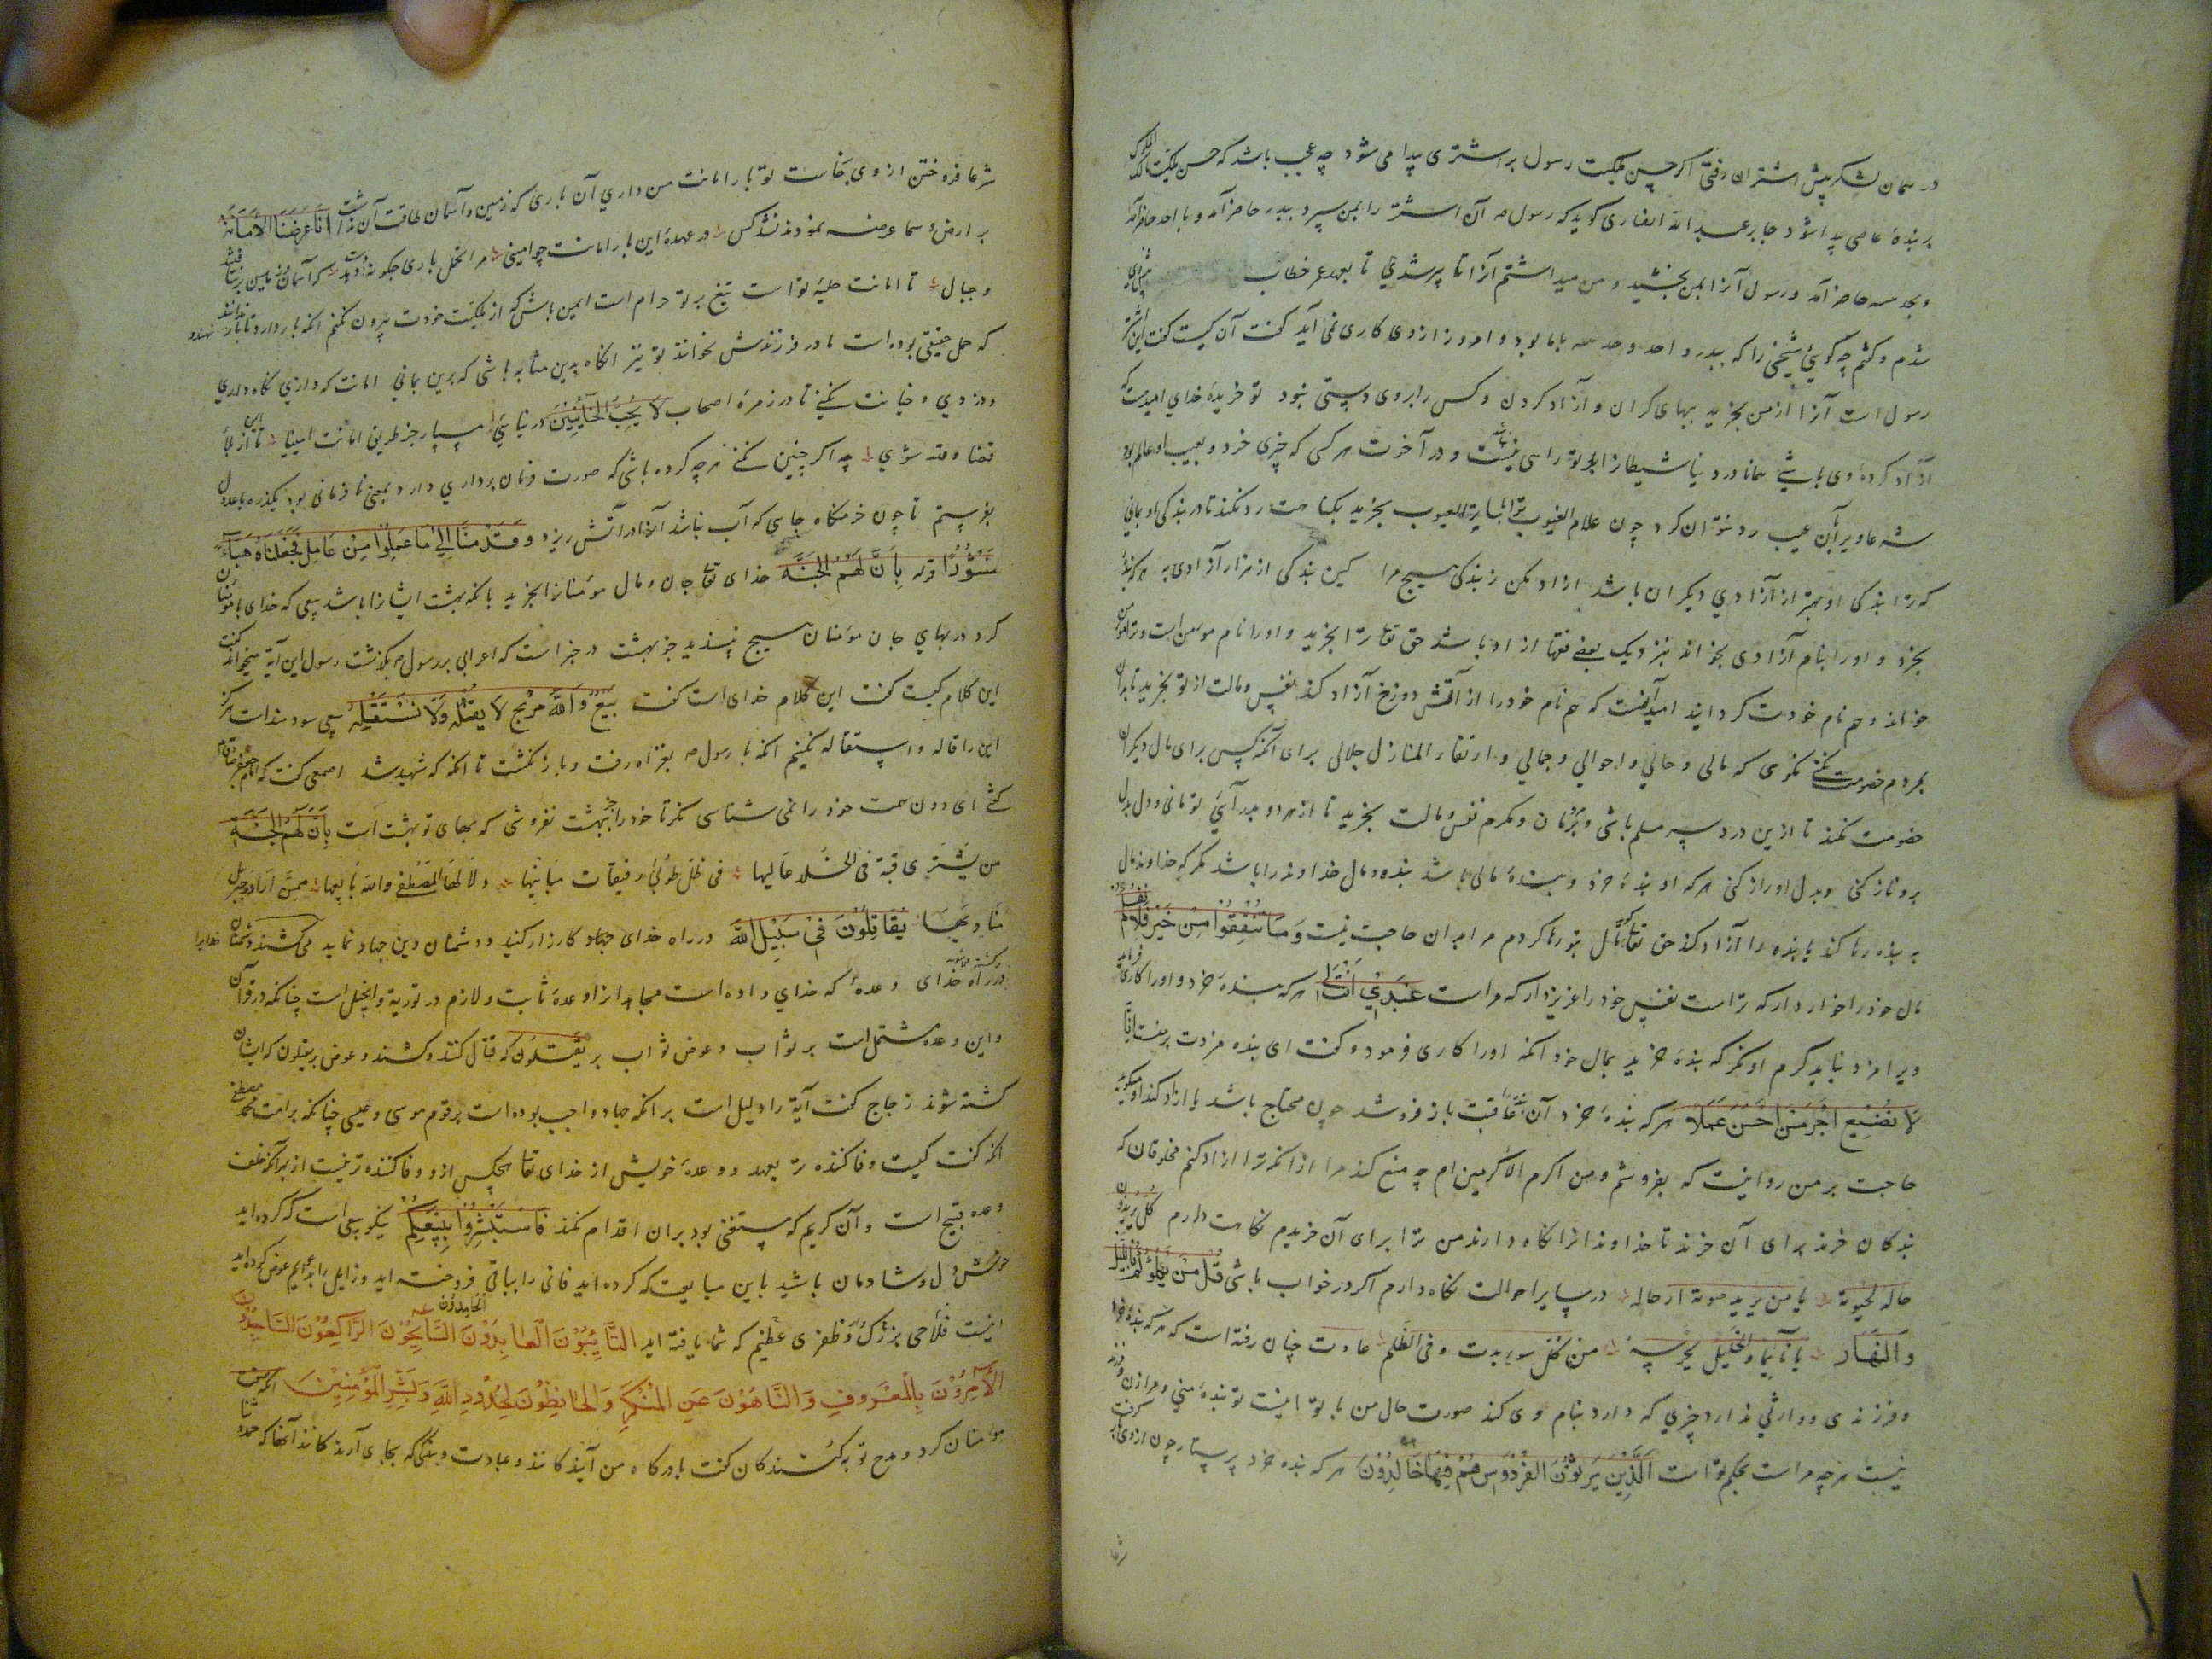 در میان لشکر پیش اشتران رفتی اگر حسن ملکیت رسول بر اشتری پیدا می شود چه عجب باشد که حسن ملکیت مالک الملوک
بر بندهٔ عاصی پیدا شود جابر عبد الله انصاری گوید که رسول آن اشتر را بمن سپرد ببدر حاضر آمد و با احد حاضر آمد
حاضر آمد و رسول آنرا بمن بخشید و من میداشتم آنرا تا پیر شد تا بعهد عمر خطاب
شدم و گفتم چه گویی شیخی را که ببدر و احد با ما بود و امروز ازوی کاری نمی آید گفت آن کیست گفت این اشتر
رسول است آنرا از من بخرید ببهای گران و آزاد کردن و کس را بر وی دستی نبود تو خریدهٔ خدای امیدست که
آزاد کردهٔ وی باشی همانا در دنیا شیطانرا بر تو راهی نیست و در آخرت هر کسی که چیزی خرد و بعیب او عالم بود
شرعا ویرا بآن عیب رد نتوان کرد چون علام الغیوب ترا العیوب بخرید بگناهت رد نکند تا در بندگی او بمانی
که ترا بندگی او بهتر از آزادی دیگران باشد آزاد مکن ز بندگی هیچ مرا کین بندگی از هزار آزادی به هر که بنده
بخرد و او را بنام آزادی بخواند بنزدیک بعضی فقها آزاد باشد حق تعا ترا بخرید و او را نام مومن است و ترا مومن
خواند و هم نام خودت گردانید امید آنست که هم نام خود را از آتش دوزخ آزاد کند نفس و مالت از تو بخرید تا با
مردم خصومت نکنی نگوی که مالی و حالی و احوالی و جمالی و ارتقاء المنازل جلالی برای آنکه کس برای مال دیگران
خصومت نکند تا ازین درد سر مسلم باشی و مکرم نفس و مالت بخرید تا از هر دو بدر آیی تو مانی و دل بدل
برو ناز کنی و بدل او راز کنی هر که او بندهٔ خرد و بندهٔ مالی باشد بنده و مال خداوند را باشد مگر که خداوند مال
به بنده رها کند یا بنده را آزاد کند حق تعا گوید مال بتو رها کردم مرا بدان حاجت نیست وَمَا تُنْفِقُوا مِنْ خَيْرٍ فَلِأَنْفُسِكُمْ
مال خود را خوار دار که تراست نفس خود را عزیز دار که مراست عَبْدِي أَنْتَ لِي هر که بندهٔ خرد و او را کاری فرماید
ویرا مزد نباید کرم او نگر که بندهٔ خرید بمال خود آنگه او را کاری فرمود و گفت ای بنده مزدت بر منست إِنَّا
لَا نُضِيعُ أَجْرَ مَنْ أَحْسَنَ عَمَلًا هر که بندهٔ خرد آن را عاقبت باز فروشد چون محتاج باشد یا آزاد کند او میگوید
حاجت بر من روا نیست که بفروشم و من اکرم الاکرمین ام چه منع کند مرا از آنکه ترا آزاد کنم مخلوقان که
بندگان خرند برای آن خرند تا خداوندانرا نگاه دارند من ترا برای آن خریدم نگاهت دارم کل یرید
یا من یرید در سایر احوالت نگاه دارم اگر در خواب باشی قُلْ مَنْ يَكْلَؤُكُمْ بِاللَّيْلِ
وَالنَّهَارِ یا نائما والخلیل یحرسه من کل سوء یدب فی الظلم عادت چنان رفته است که هر که بندهٔ خرد
و فرزندی و وارثی ندارد چیزی که دارد بنام وی کند صورت حال من با تو اینست تو بندهٔ منی و مرا زن و فرزند
نیست هر چه مراست بحکم تو است اَلَّذِينَ يَرِثُونَ الْفِرْدَوْسَ هُمْ فِيهَا خَالِدُونَ هر که بنده خرد پرستار چون ازوی گرفت
شرعا
شرعا فروختن ازوی بخاست تو بار امانت من داری آن باری که زمین و آسمان طاقت آن نداشت إِنَّا عَرَضْنَا الْأَمَانَةَ
بر ارض و سما عرضه نمودند نشد کس در عهدهٔ این بار امانت چو امینی
و جبال تا امانت حلیهٔ تو است تیغ بر تو حرام است ایمن باش که از ملکیت خودت بیرون نکنم آنکه بار دارد تا بار ننهد
که حمل حقیقی بوده است مادر فرزندش نخوانند تو نیز آنگاه بدین مثابه باشی که برین بمانی امانت که داری نگاه داری
و دزدی و خیانت نکنی تا در زمرهٔ اصحاب لَا يُحِبُّ الْخَائِنِينَ در نیایی مسپار جز طریق امانت امینیا
قضا و قدر شوی چه اگر چنین کنی هر چه کرده باشی که صورت فرمان برداری دارد بمعنی نافرمانی بود بگذره باعدل
بفرستم تا چون خرمنگاه جایی که آب نباشد آنرا در آتش ریزد وَقَدِمْنَا إِلَى مَا عَمِلُوا مِنْ عَمَلٍ فَجَعَلْنَاهُ هَبَاءً
مَنْثُورًا قوله بِأَنَّ لَهُمُ الْجَنَّةَ خدای تعا جان و مال مؤمنانرا بخرید بآنکه بهشت ایشانرا باشد بیعی که خدای با مؤمنان
کرد در بهای جان مؤمنان هیچ نپسندید جز بهشت در خبر است که اعرابی بر رسول بگذشت رسول این آیه میخواند گفت
این کلام کیست گفت این کلام خدای است گفت بَيْعٌ وَاللَّهِ مُرْبِحٌ لَا نُقِيلُهُ وَلَا نَسْتَقِيلُهُ بیعی سودمند است هرگز
این را اقاله و استقاله نکنیم آنگه با رسول بغزاه رفت و باز نگشت تا آنگه که شهید شد اصمعی گفت که امام جعفر صادق
گفتی ای دون همت خود را نمی شناسی نگر تا خود را جز ببهشت نفروشی که بهای تو بهشت است بِأَنَّ لَهُمُ الْجَنَّةَ
من یشتری قبة فی الخلد عالیها فی ظل طوبی رفیعات مبانیها دلالها المصطفی والله بایعها ممن اراد و جبریل
منادیها يُقَاتِلُونَ فِي سَبِيلِ اللَّهِ در راه خدای جهاد کارزار کنند و دشمنان دین جهاد نمایند می کشند دشمنان خدایرا
در راه خدای وعدهٔ که خدای داده است مجاهدانرا وعدهٔ ثابت و لازم در توریة و انجیل است چنانکه در قرآن
و این وعده مشتمل است بر ثواب و عوض ثواب بر یقتلون که قتال کنند و کشند و عوض بر یقتلون که ایشان
کشته شوند زجاج گفت آیة را دلیل است بر آنکه جهاد واجب بوده است بر قوم موسی و عیسی چنانکه بر امت محمد مصطفی
آنگه گفت کیست وفا کننده تر بعهد و وعدهٔ خویش از خدای تعا هیچکس ازو وفا کننده تر نیست از برا که خلف
وعده قبیح است و آن کریم که مستغنی بود بران اقدام نکند فَاسْتَبْشِرُوا بِبَيْعِكُمْ نیکو بیعی است که کرده اید
خوش دل و شادمان باشید باین مبایعت که کرده اید فانی را بباقی فروخته اید و زایل را بدایم عوض کرده اید
اینست فلاحی بزرگ و ظفری عظیم که شما یافته اید التَّائِبُونَ الْعَابِدُونَ الْحَامِدُونَ السَّائِحُونَ الرَّاكِعُونَ السَّاجِدُونَ
الْآمِرُونَ بِالْمَعْرُوفِ وَالنَّاهُونَ عَنِ الْمُنْكَرِ وَالْحَافِظُونَ لِحُدُودِ اللَّهِ وَبَشِّرِ الْمُؤْمِنِينَ
مؤمنان کرد و مدح توبه کنندگان گفت بادرگاه من آیندگانند و عبادت و بندگی که بجای آرندگانند آنها که حمد و ثنا